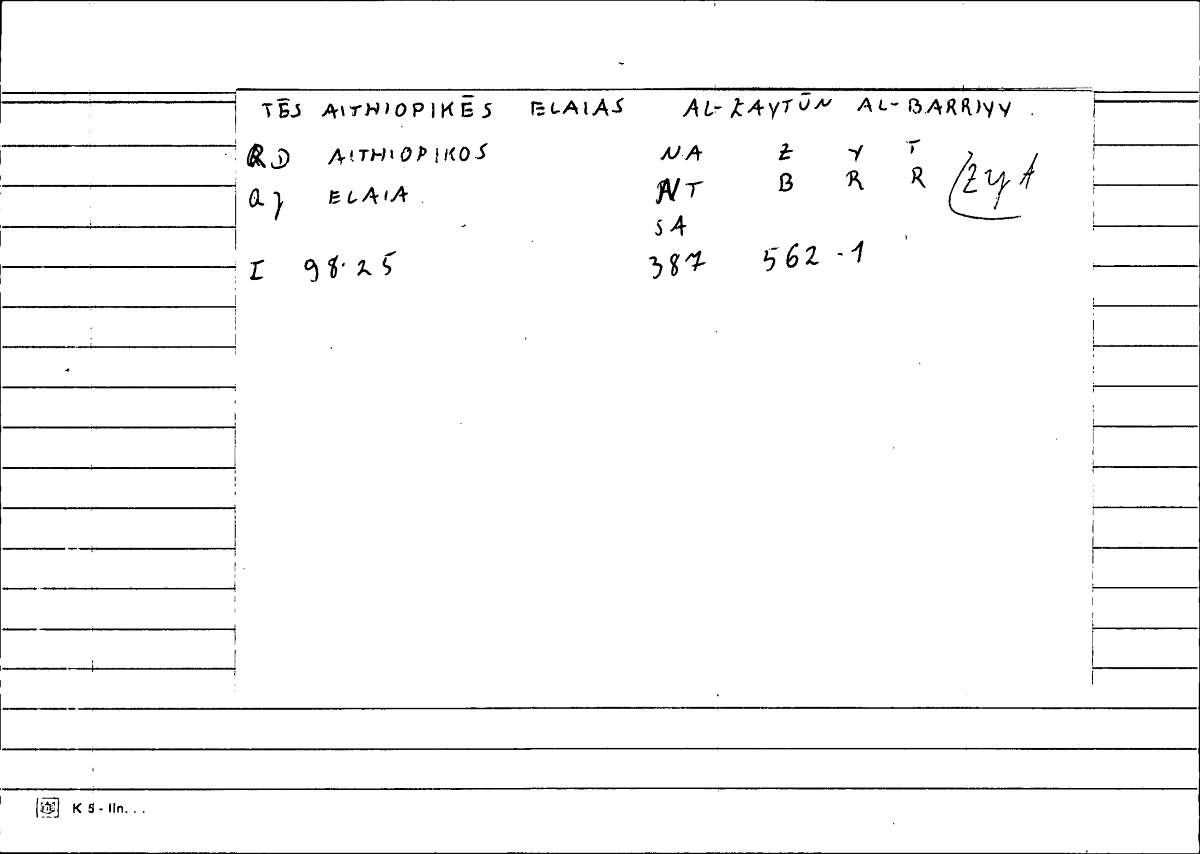 TĒS AITHIOPIKĒS ELAIAS AL-ZAYTŪN AL-BARRIYY.
QD AITHIOPIKOS NA Z Y T
QJ ELAIA NT B R R Zyt
SA
I 98.25 387 562.1
K 5 - lin. . .